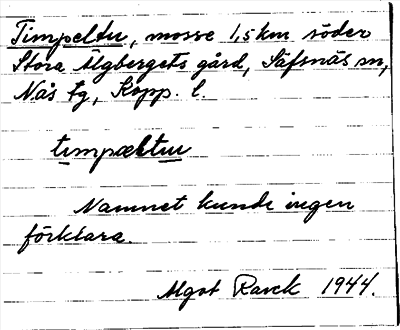 Timpeldu, mosse 1,5 km söder
Stora Ulgbergets gård, Säfsnäs sn,
Nås fg, Kopp. l.
Namnet kunde ingen
förklara.
Algot Ranck 1944.